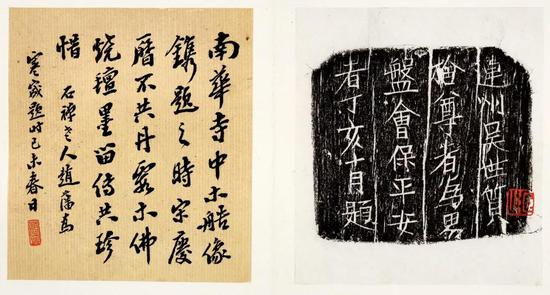 連州吳世質
捨尊者為男
盤會保平安
者丁亥十月題
南華寺中木艁像
鐫題之時宋慶
曆不共丹霞木佛
燒墨留傳共珍
惜
石禪老人趙藩為
題時己未春日